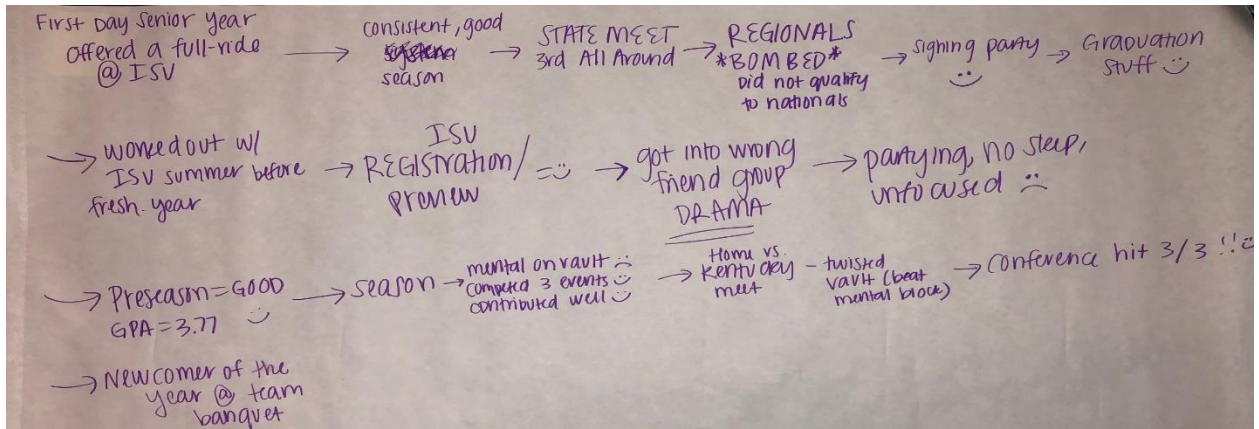 First Day Senior Year
offered a full-ride
@ ISU
→ consistent, good
season
→ STATE MEET
3rd All Around
→ REGIONALS
*BOMBED*
Did not qualify
to nationals
→ signing party
:)
→ Graduation
Stuff :)
→ worked out w/
ISU summer before
fresh. year
→ ISU
REGIStration/
preview
= :)
→ got into wrong
friend group
DRAMA
→ partying, no sleep,
unfocused :(
→ Preseason = GOOD
GPA = 3.77 :)
→ season
→ mental on vault :(
competed 3 events :)
contributed well :)
→ Home vs.
Kentucky
meet
- twisted
vault (beat
mental block)
→ Conference hit 3/3 !! :)
→ Newcomer of the
year @ team
banquet